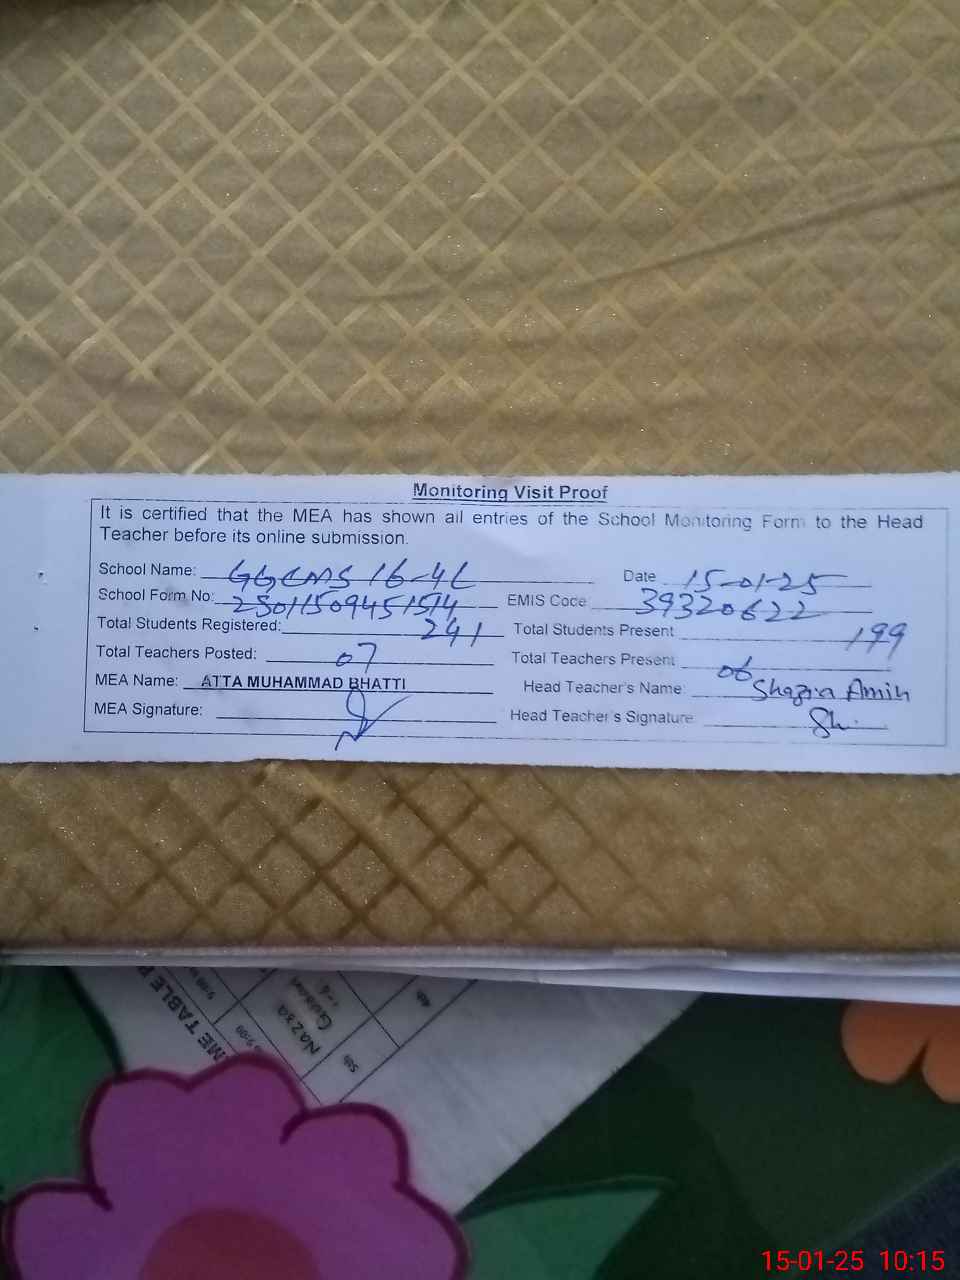 Monitoring Visit Proof
It is certified that the MEA has shown all entries of the School Monitoring Form to the Head
Teacher before its online submission.
School Name: GGCMS 16-4L Date 15-01-25
School Form No: 25011509451514 EMIS Code: 39320622
Total Students Registered: 241 Total Students Present 199
Total Teachers Posted: 07 Total Teachers Present 06
MEA Name: ATTA MUHAMMAD BHATTI Head Teacher's Name: Shazia Amin
MEA Signature: Head Teacher's Signature Sh.
ME TABLE
9:00
Nazra
4th
5th
15-01-25 10:15